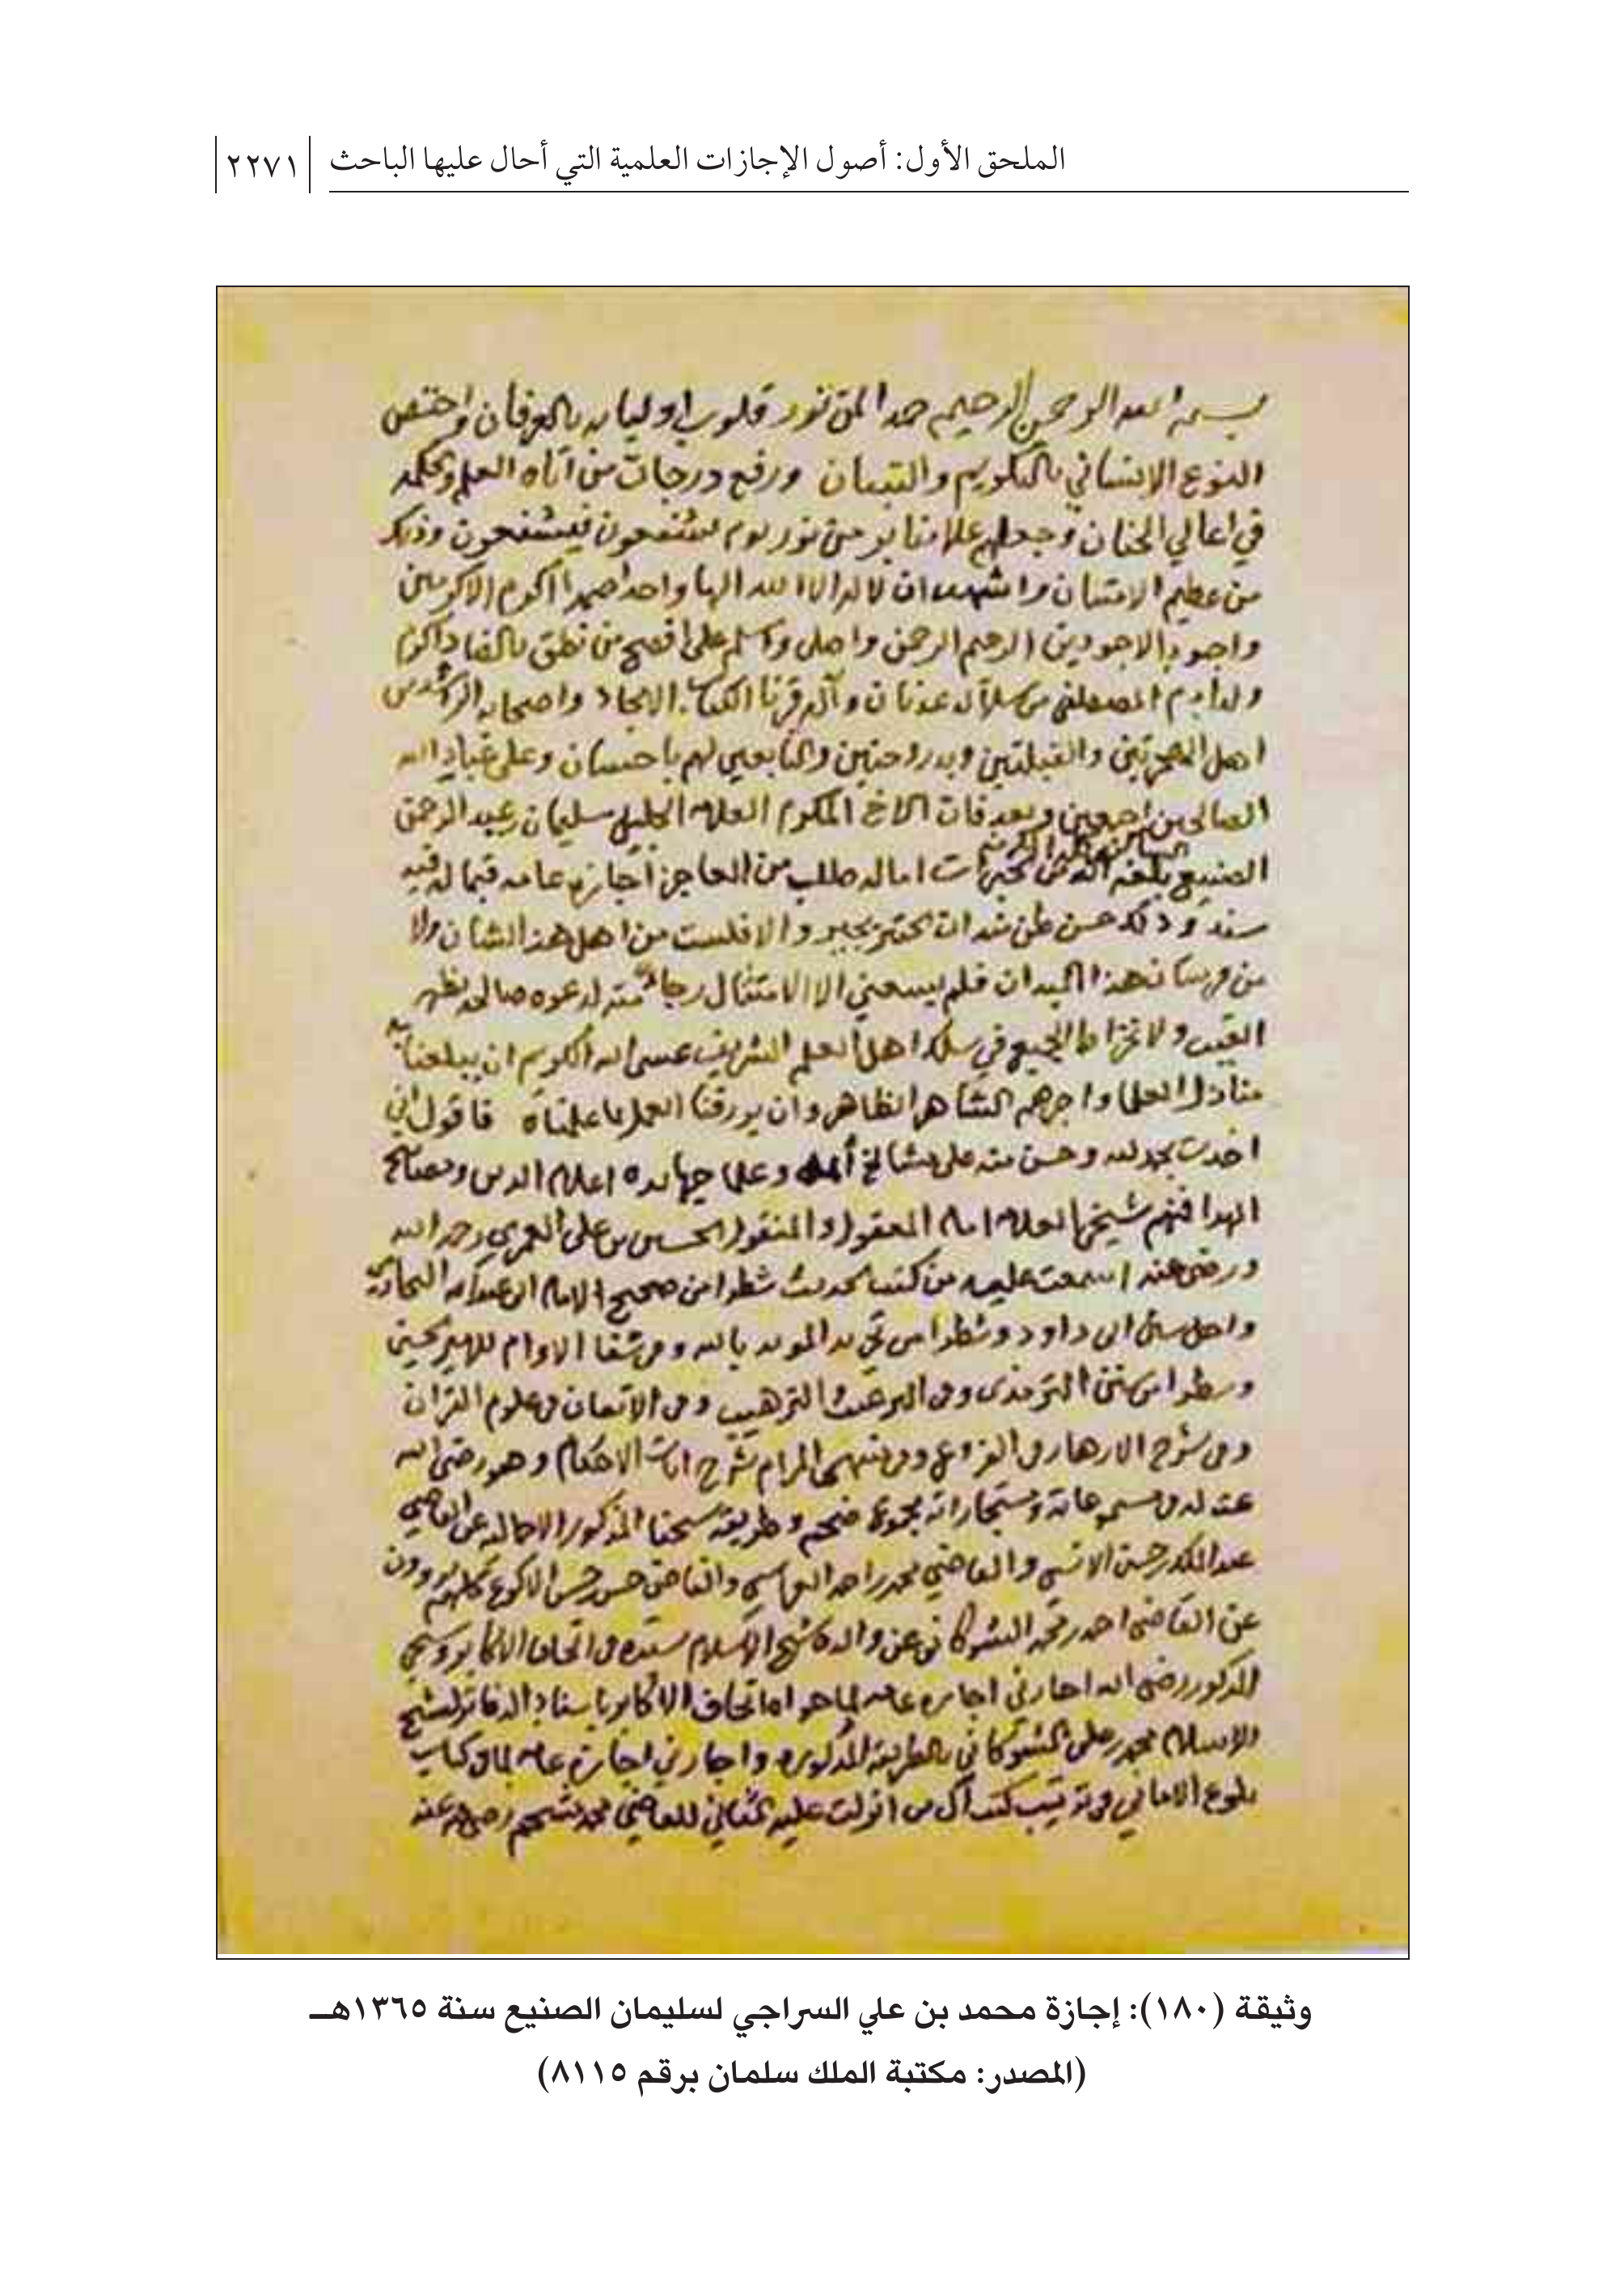 الملحق الأول: أصول الإجازات العلمية التي أحال عليها الباحث ٢٢٧١
بسم الله الرحمن الرحيم حمدا لمن نور قلوب اوليايه بالعرفان واختص
النوع الانساني بالتكليم والتبيان ورفع درجات من اتاه العلم وحكمه
في اعالي الجنان وجعلهم يوم يشفعون فيشفعون وذلك
من عظيم الامتنان واشهد ان لا اله الا الله الها واحدا صمدا اكرم الاكرمين
واجود الاجودين الرحيم الرحمن واصلي واسلم على افصح من نطق بالضاد واكرم
ولد ادم المصطفى من سلالة عدنان وآله قرنا الكتاب الامجاد واصحابه الراشدين
اهل الهجرتين والقبلتين والتابعين لهم باحسان وعلى عباد الله
الصالحين اجمعين وبعد فان الاخ المكرم العلامة الجليل سليمان بن عبد الرحمن
الصنيع بلغه الله من الخيرات اماله طلب من العاجز اجازة عامة فيما له فيه
سند وذلك حسن ظن منه والا فلست من اهل هذا الشان ولا
من فرسان هذا الميدان فلم يسعني الا الامتثال رجاء منه لدعوة صالحة بظهر
الغيب ولانخراط الجميع في سلك اهل العلم الشريف عسى الله الكريم ان يبلغنا
منازل العلما واجرهم وان يرزقنا العمل بما علمناه فاقول اني
اخذت بحمد الله وحسن منه على مشايخ وعلى جهابذه اعلام الدين ومصابيح
الهدا فمنهم شيخي العلامة امام المعقول والمنقول الحسين بن علي العمري رحمه الله
ورضي عنه اسمعت عليه من كتب الحديث شطرا من صحيح الامام ابي عبد الله البخاري
وشطرا من تجريد المويد بالله وفي شفا الاوام للامير الحسين
وشطرا من سنن الترمذي وفي الترغيب والترهيب وفي الاتقان في علوم القران
وفي شرح الازهار في الفروع وفي منتهى المرام شرح ايات الاحكام وهو رضي الله
عنه له في مسموعاته ومستجازاته مجموع ضخم وطريقة شيخنا المذكور عن القاضي
عبد الملك بن حسين الانسي والقاضي محمد بن احمد العراسي والقاضي حسين بن حسن الاكوع كلهم يروون
عن القاضي احمد بن محمد الشوكاني عن والده شيخ الاسلام بسنده في اتحاف الاكابر وشيخي
المذكور رضي الله اجازني اجازة عامة لما حواه اتحاف الاكابر باسناد الدفاتر لشيخ
الاسلام محمد بن علي الشوكاني بالطريقة المذكورة واجازني اجازة عامة لما في كتاب
بلوغ الاماني في ترتيب كتب آل من انزلت عليه المثاني للقاضي محمد مشحم رضي الله عنه
وثيقة (١٨٠): إجازة محمد بن علي السراجي لسليمان الصنيع سنة ١٣٦٥هـ
(المصدر: مكتبة الملك سلمان برقم ٨١١٥)